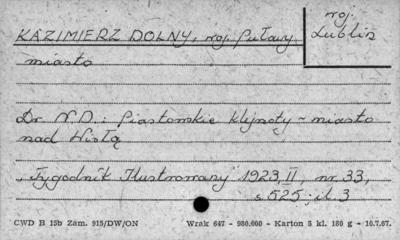 KAZIMIERZ DOLNY, woj. Puławy
woj.
Lublin
miasto
Dr. W.D.: Piastowskie klejnoty - miasto
nad Wisłą
"Tygodnik Ilustrowany" 1923, II, nr. 33,
s. 525; il. 3
CWD B 15b Zam. 915/DW/ON Wrak 647 - 980.000 - Karton 5 kl. 180 g - 10.7.67.